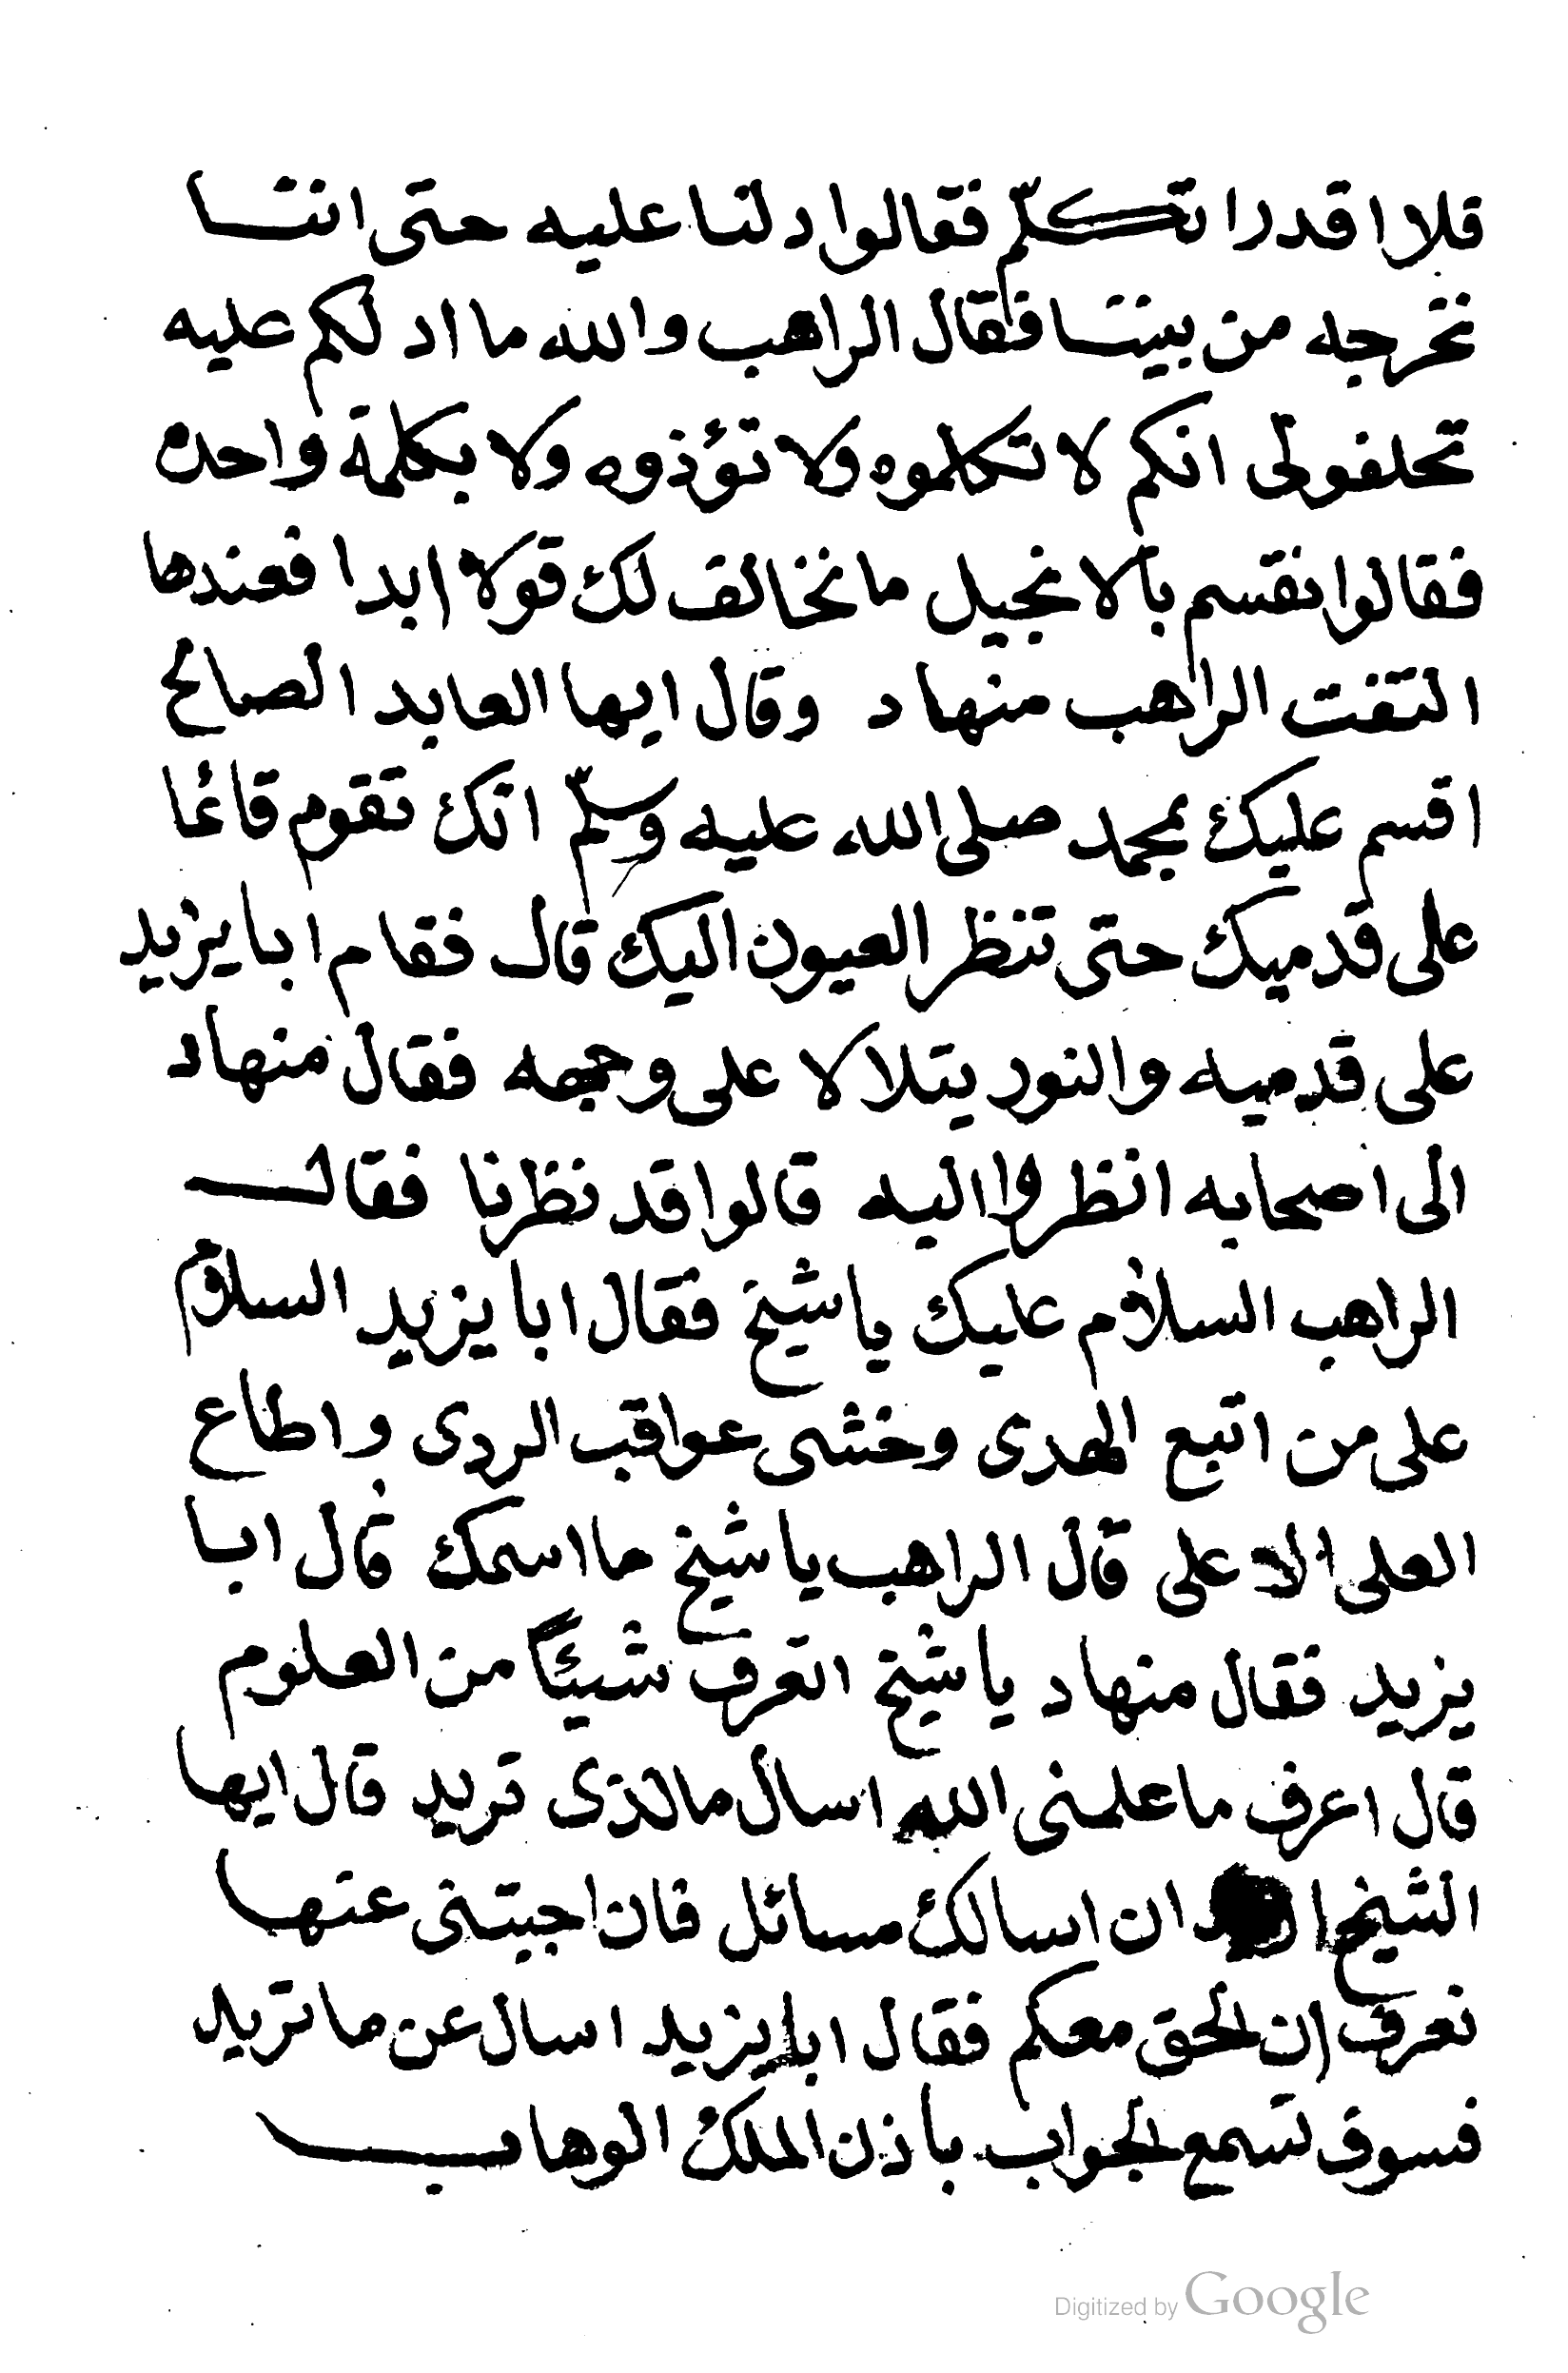 فلا اقدر اتكلّم فقالوا دلنا عليه حتى اننا
نخرجه من بيننا فقال الراهب والله ما ادلكم عليه
تحلفولى انكم لا تكلموه ولا تؤذوه ولا بكلمة واحده
فقالوا نقسم بالانجيل ما نخالف لك قولا ابدا فعندها
التفت الراهب منهاد وقال ايها العابد الصالح
اقسم عليك بمحمد صلى الله عليه وسلّم انك تقوم قائما
على قدميك حتى تنظر العيون اليك قال فقام ابا يزيد
على قدميه والنور يتلالا على وجهه فقال منهاد
الى اصحابه انظروا اليه قالوا قد نظرنا فقال
الراهب السلام عليك يا شيخ فقال ابا يزيد السلام
على من اتبع الهدى وخشى عواقب الردى واطاع
العلى الاعلى قال الراهب يا شيخ ما اسمك قال ابا
يزيد فقال منهاد يا شيخ اتعرف شيئاً من العلوم
قال اعرف ما علمنى الله اسال مالذى تريد قال ايها
الشيخ ان اسالك مسائل فان اجبتنى عنها
نعرف ان الحق معكم فقال ابا يزيد اسال عن ما تريد
فسوف تسمع الجواب باذن الملك الوهاب
Digitized by Google